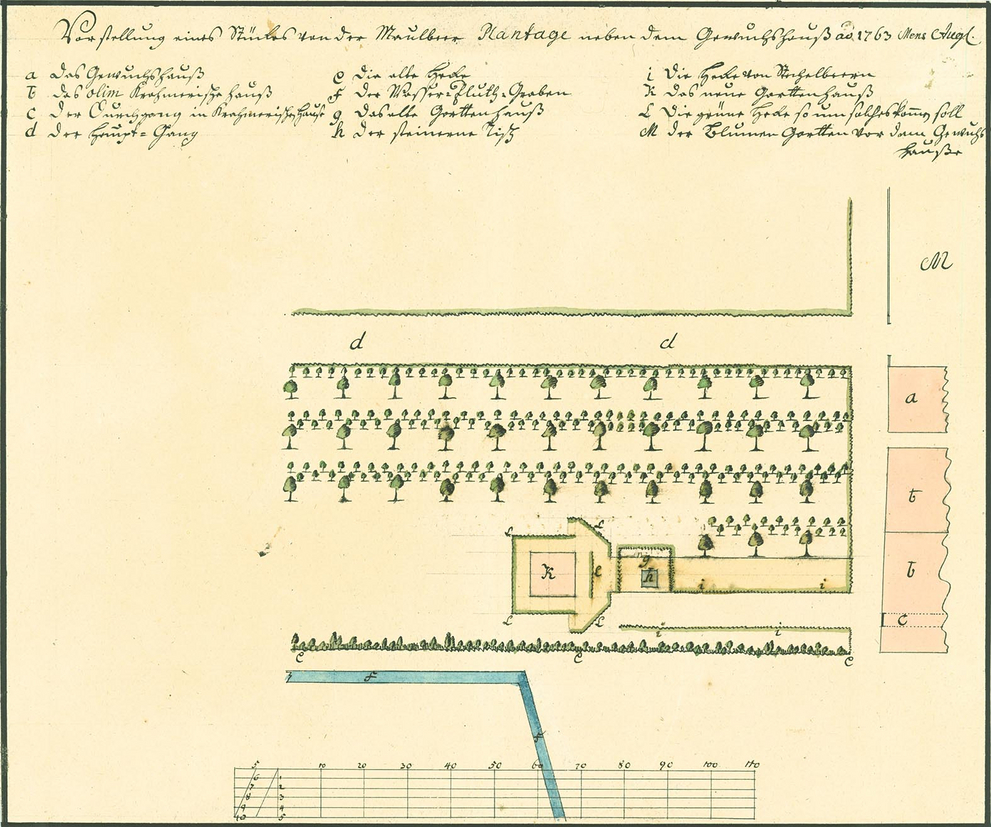 Vorstellung eines Stückes von der Maulbeer Plantage neben dem Gewächshauß aō 1763 Mens Aug.
a das Gewächshauß
b das olim Krahmerische Hauß
c der Durchgang in Krahmerische Hauße
d der Haupt=Gang
e die alte Hecke
f der Wasser=Fluth=Graben
g das alte Garttenhauß
h der steinerne Tisch
i die Hecke von Stachelbeern
K das neue Garttenhauß
L die grüne Hecke so um solches kom̄en soll
M der Blumen Gartten vor dem Gewächs
Hauße
M
d d
a
b
L L
K e g h
i i
b
L L
c
i i
e e e
f
f
5 10 20 30 40 50 60 70 80 90 100 110
6 1
7 2
8 3
9 4
10 5